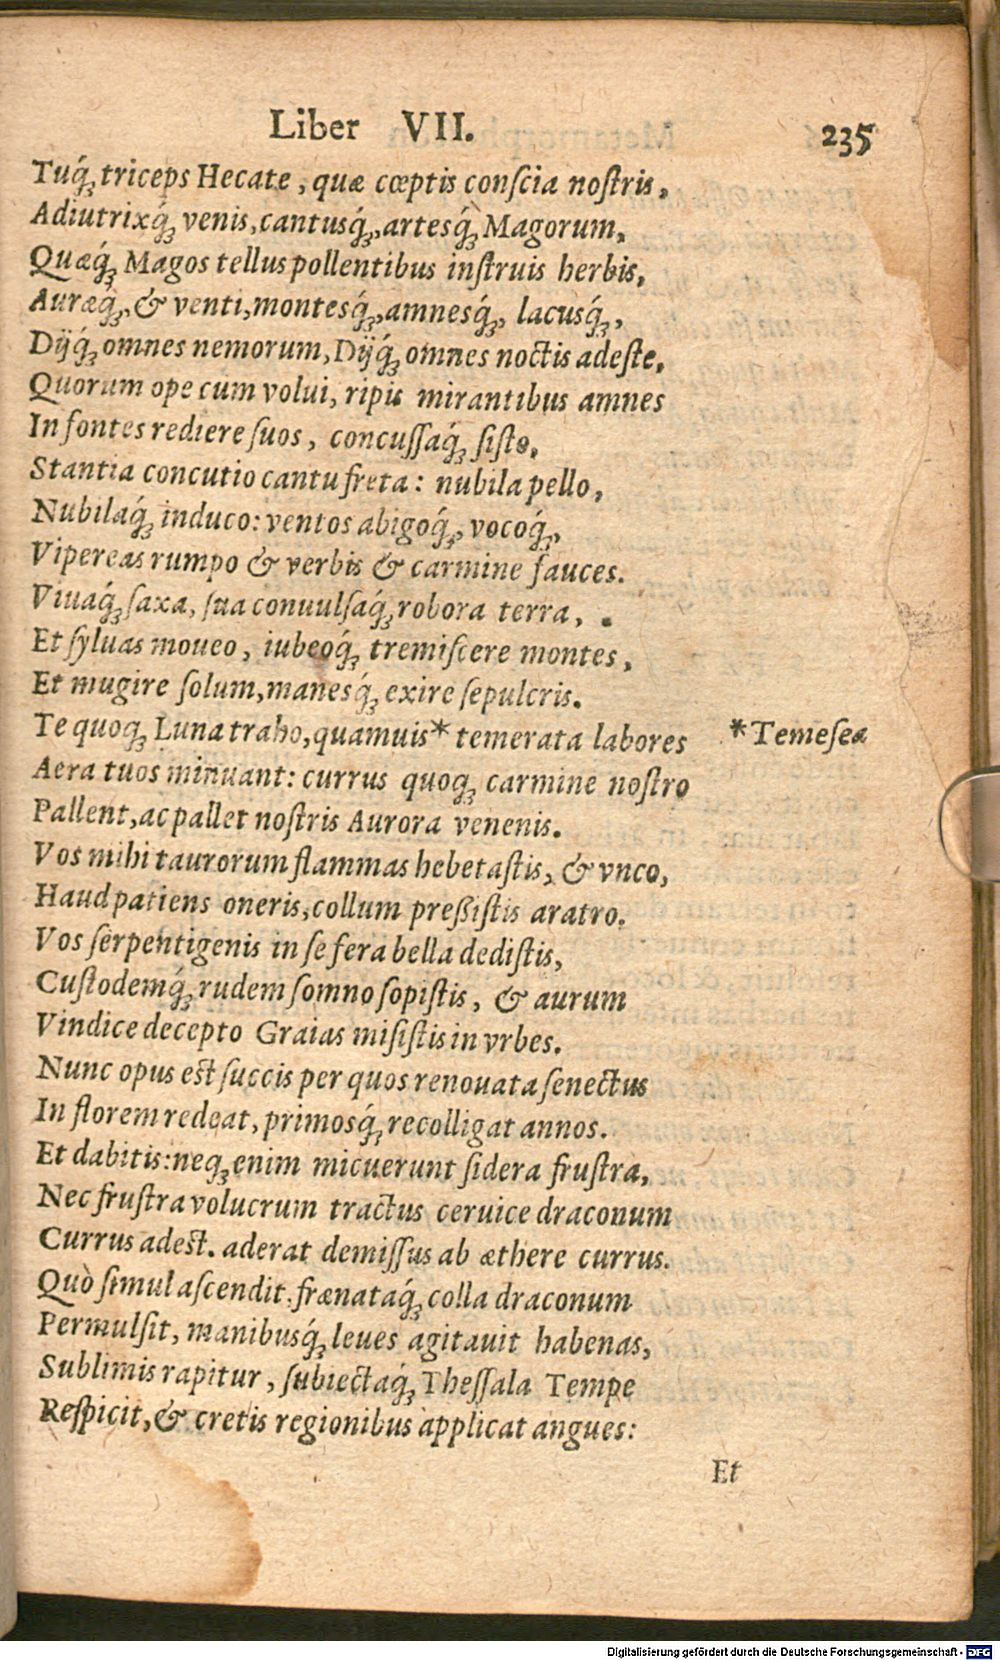 Liber VII. 235
Tuq́ꝫ triceps Hecate, quæ cœptis conſcia noſtris,
Adiutrixq́ꝫ venis, cantusq́ꝫ, artesq́ꝫ Magorum,
Quæq́ꝫ Magos tellus pollentibus inſtruis herbis,
Auræq́ꝫ, & venti, montesq́ꝫ, amnesq́ꝫ, lacusq́ꝫ,
Dijq́ꝫ omnes nemorum, Dijq́ꝫ omnes noctis adeſte,
Quorum ope cum volui, ripis mirantibus amnes
In fontes rediere ſuos, concuſſaq́ꝫ ſiſto,
Stantia concutio cantu freta: nubila pello,
Nubilaq́ꝫ induco: ventos abigoq́ꝫ, vocoq́ꝫ,
Vipereas rumpo & verbis & carmine fauces.
Viuaq́ꝫ ſaxa, ſua conuulſaq́ꝫ robora terra,
Et ſyluas moueo, iubeoq́ꝫ tremiſcere montes,
Et mugire ſolum, manesq́ꝫ exire ſepulcris.
Te quoqꝫ Luna traho, quamuis* temerata labores *Temeſeæ
Aera tuos minuant: currus quoqꝫ carmine noſtro
Pallent, ac pallet noſtris Aurora venenis.
Vos mihi taurorum flammas hebetaſtis, & vnco,
Haud patiens oneris, collum preßiſtis aratro.
Vos ſerpentigenis in ſe fera bella dediſtis,
Cuſtodemq́ꝫ rudem ſomno ſopiſtis, & aurum
Vindice decepto Graias miſiſtis in vrbes.
Nunc opus eſt ſuccis per quos renouata ſenectus
In florem redeat, primosq́ꝫ recolligat annos.
Et dabitis: neqꝫ enim micuerunt ſidera fruſtra,
Nec fruſtra volucrum tractus ceruice draconum
Currus adeſt. aderat demiſſus ab æthere currus.
Quò ſimul aſcendit, frænataq́ꝫ colla draconum
Permulſit, manibusq́ꝫ leues agitauit habenas,
Sublimis rapitur, ſubiectaq́ꝫ Theſſala Tempe
Reſpicit, & cretis regionibus applicat angues:
Et
Digitalisierung gefördert durch die Deutsche Forschungsgemeinschaft - DFG